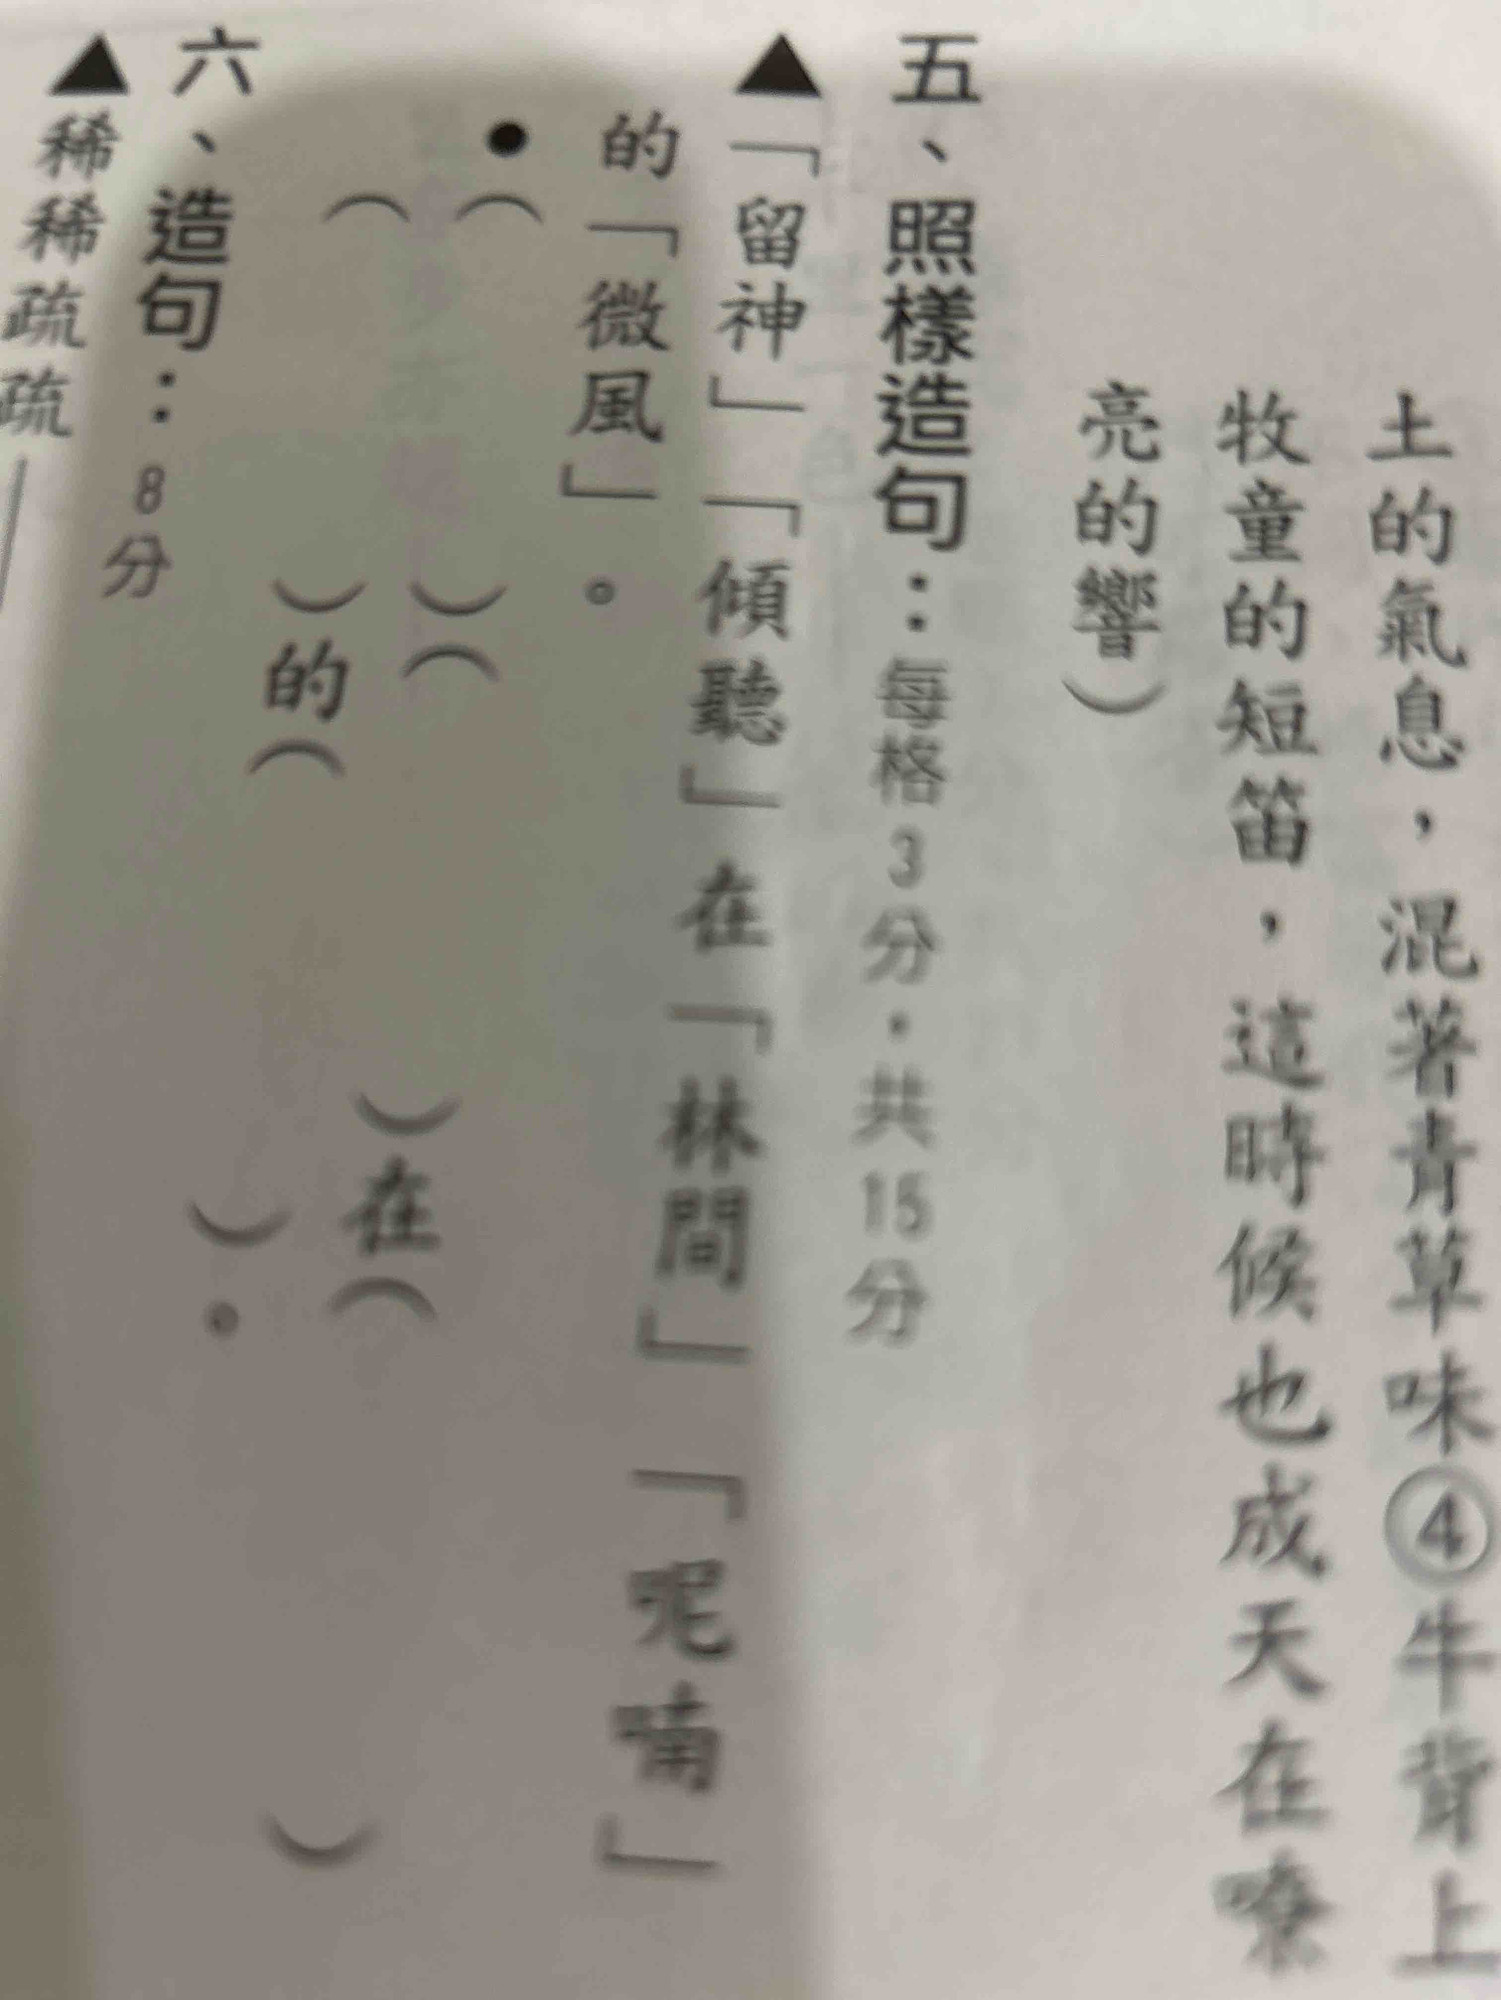 土的氣息，混著青草味④牛背上
牧童的短笛，這時候也成天在嘹
亮的響）
五、照樣造句：每格3分，共15分
▲「留神」「傾聽」在「林間」「呢喃」
的「微風」。
●（　　）（　　）在（　　）
（　　）的（　　）。
六、造句：8分
▲稀稀疏疏